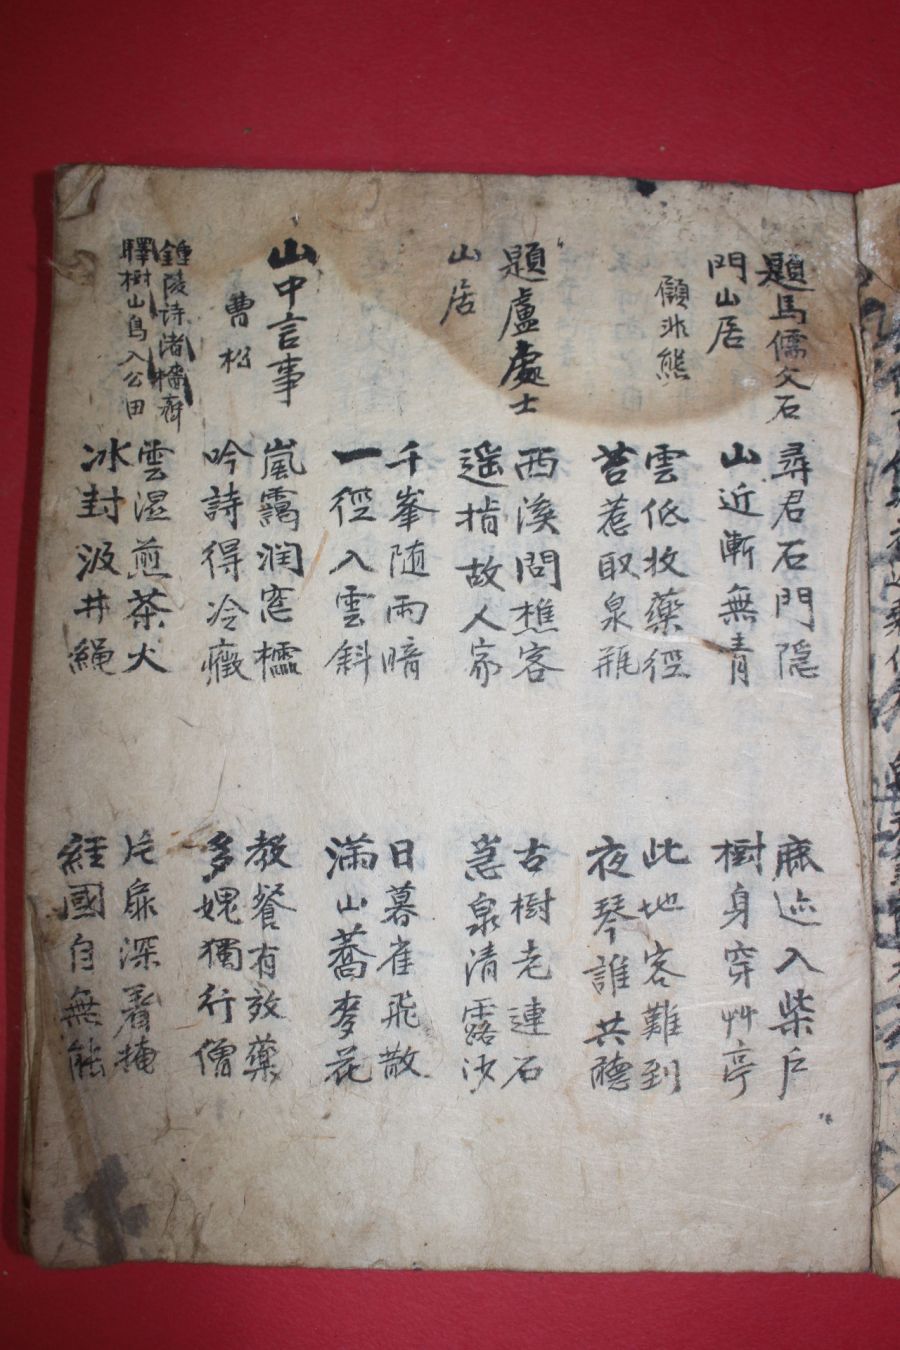 題馬儒父石
門山居
顧非熊
尋君石門隱
山近漸無青
麻迹入柴戶
樹身穿艸亭
雲低收藥徑
苔惹取泉瓶
此地客難到
夜琴誰共聽
題盧處士
山居
西溪問樵客
遥指故人家
古樹老連石
急泉清露沙
千峯随雨暗
一徑入雲斜
日暮雀飛散
滿山蕎麥花
山中言事
曹松
嵐靄潤窓櫺
吟詩得冷癥
教餐有效藥
多媿獨行僧
雲濕煎茶火
冰封汲井繩
片扉深着掩
經國自無能
鍾陵诗渚檣齊
驛樹山鳥入公田